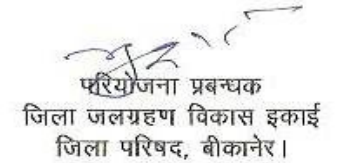 परियोजना प्रबन्धक
जिला जलग्रहण विकास इकाई
जिला परिषद, बीकानेर।